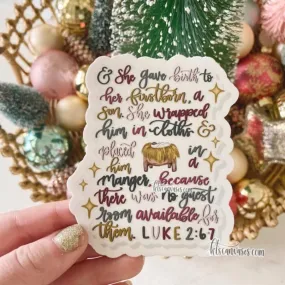 & She gave birth to
her firstborn, a
Son. She wrapped
him in cloths &
placed him in a
manger, because
there was no guest
room available for
them. LUKE 2:67
letscanvases.com